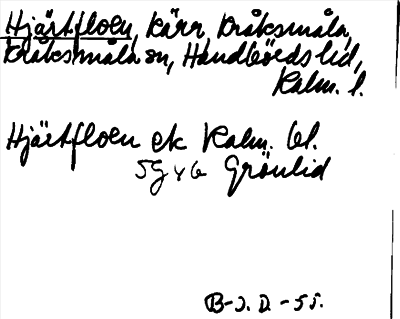 Hjärtfloen, kärr, Kråksmåla,
Kråksmåla sn, Handbörds hd,
Kalm. l.
Hjärtfloen ek Kalm. bl.
5G y6 Grönlid
B-J. D. -55.